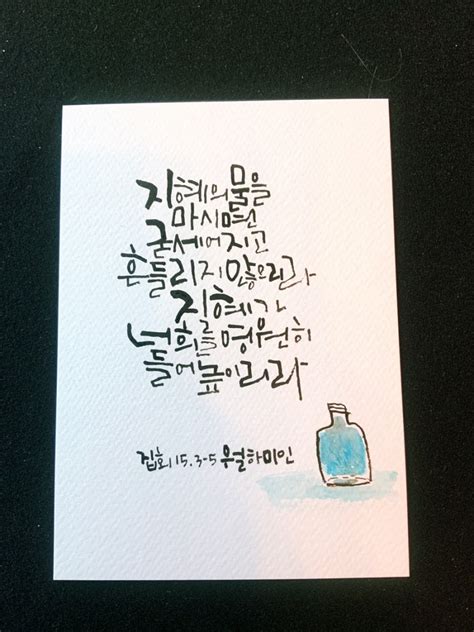 지혜의 물을
마시면
굳세어지고
흔들리지 않으리라
지혜가
너희를 영원히
들어높이리라
집회 15. 3-5 우월하미인